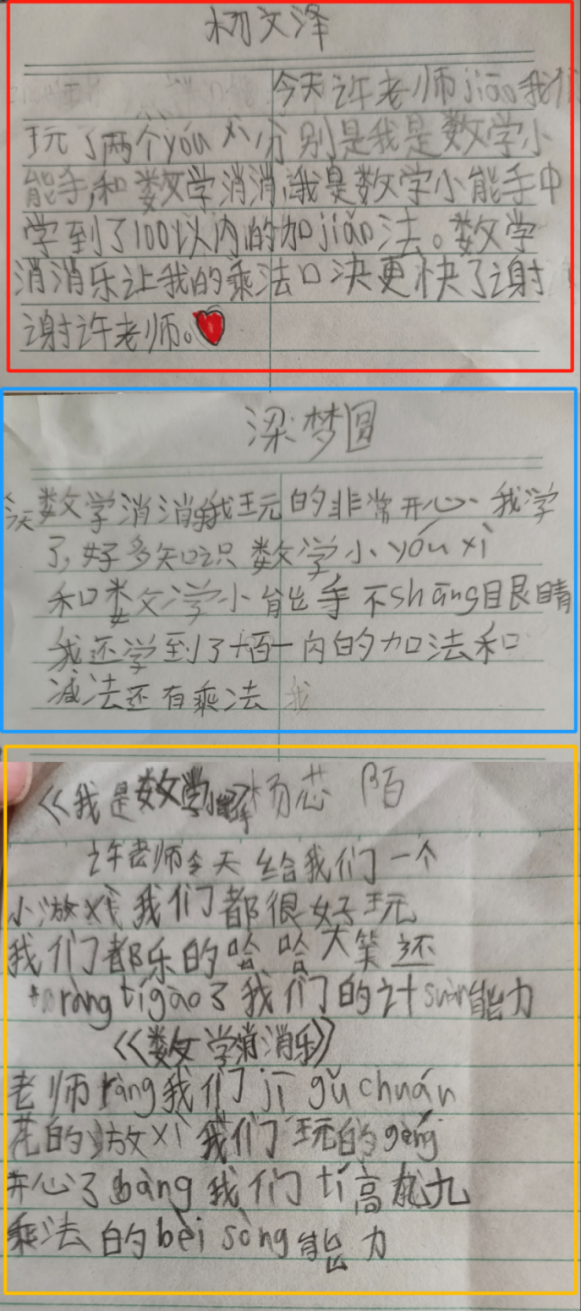 杨文泽
今天许老师jiāo我们
玩了两个yóu xì分别是我是数学小
能手,和数学消消,我是数学小能手中
学到了100以内的加jiǎn法。数学
消消乐让我的乘法口决更快了谢
谢许老师。
梁梦圆
今天数学消消乐我玩的非常开心、我学
了,好多知识数学小yóu xì
和数学小能手不shāng眼睛
我还学到了一百以内的加法和
减法还有乘法 我
《我是数学小能手》杨芯陌
许老师今天给我们一个
小游xì我们都很好玩
我们都乐的哈哈大笑还
ràng tígāo了我们的计suàn能力
《数学消消乐》
老师ràng我们jī gǔ chuán
花的游xì我们玩的gèng
开心了bàng我们tí高九九
乘法的bèi sòng能力